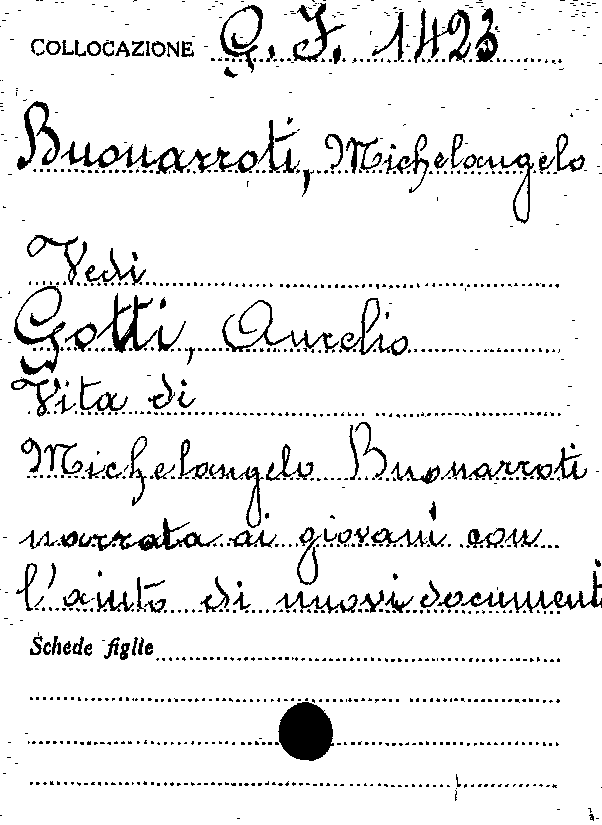 COLLOCAZIONE G. F. 1423
Buonarroti, Michelangelo
Vedi
Gotti, Aurelio
Vita di
Michelangelo Buonarroti
narrata ai giovani con
l'aiuto di nuovi documenti
Schede figlie